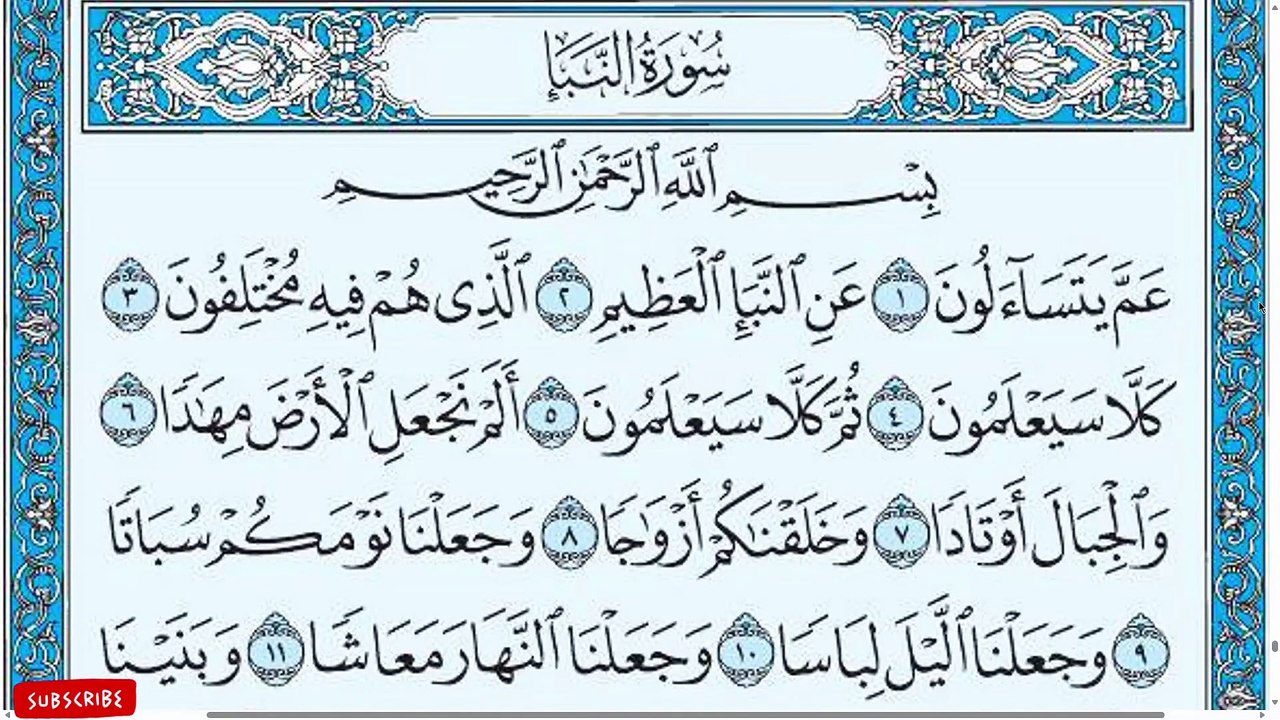 سُورَةُ النَّبَإِ
بِسْمِ ٱللَّهِ ٱلرَّحْمَٰنِ ٱلرَّحِيمِ
عَمَّ يَتَسَآءَلُونَ ١ عَنِ ٱلنَّبَإِ ٱلْعَظِيمِ ٢ ٱلَّذِى هُمْ فِيهِ مُخْتَلِفُونَ ٣
كَلَّا سَيَعْلَمُونَ ٤ ثُمَّ كَلَّا سَيَعْلَمُونَ ٥ أَلَمْ نَجْعَلِ ٱلْأَرْضَ مِهَٰدًا ٦
وَٱلْجِبَالَ أَوْتَادًا ٧ وَخَلَقْنَٰكُمْ أَزْوَٰجًا ٨ وَجَعَلْنَا نَوْمَكُمْ سُبَاتًا
٩ وَجَعَلْنَا ٱلَّيْلَ لِبَاسًا ١٠ وَجَعَلْنَا ٱلنَّهَارَ مَعَاشًا ١١ وَبَنَيْنَا
SUBSCRIBE